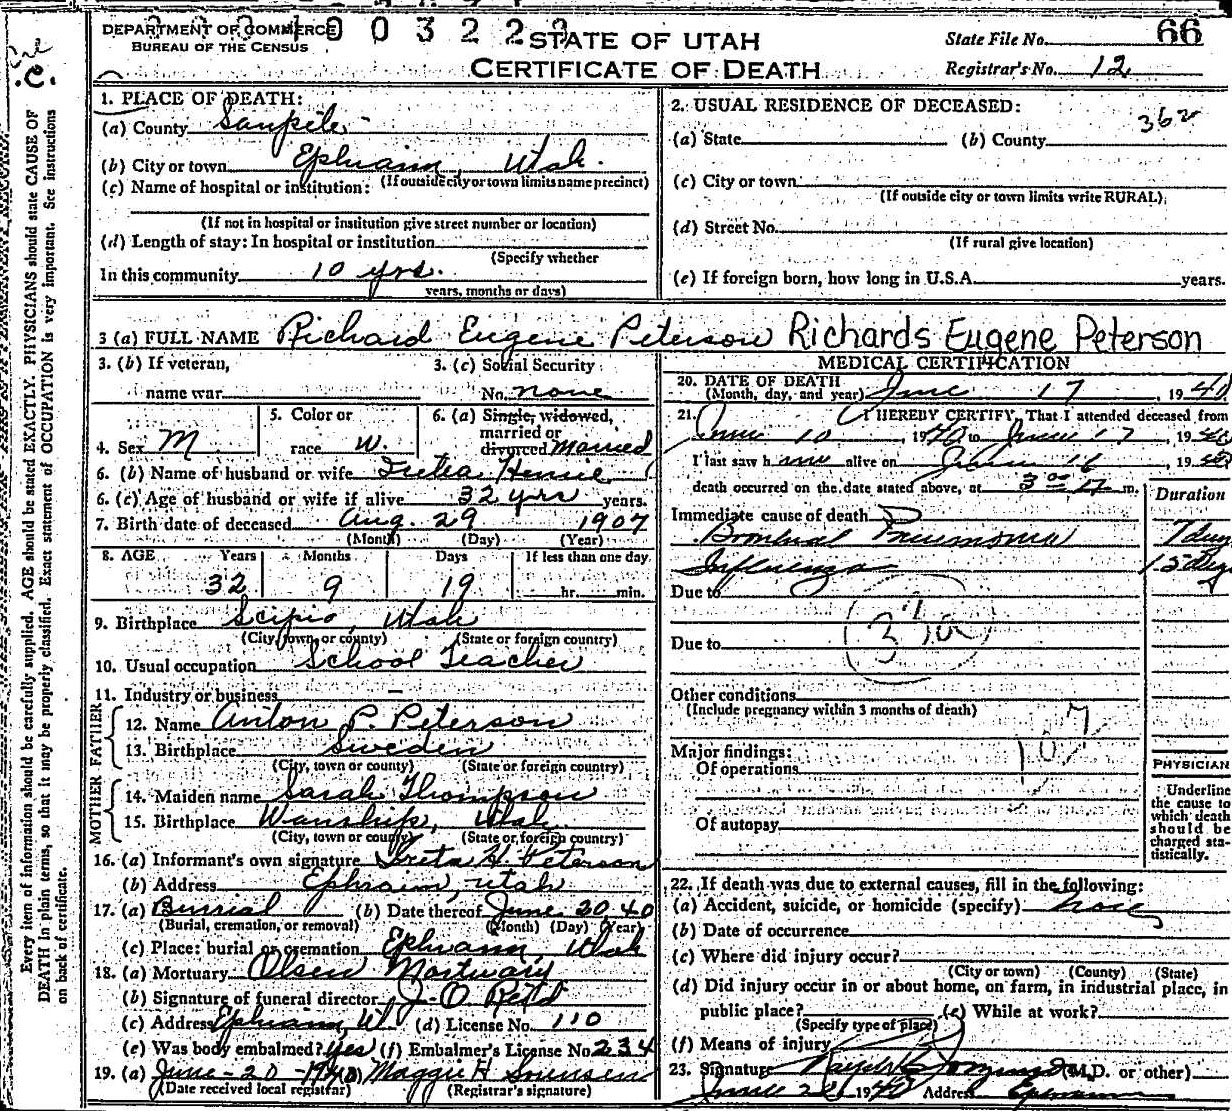 DEPARTMENT OF COMMERCE
BUREAU OF THE CENSUS
0 0 3 2 2
STATE OF UTAH
CERTIFICATE OF DEATH
66
State File No.
Registrar's No. 12
.C.
Every item of information should be carefully supplied. AGE should be stated EXACTLY. PHYSICIANS should state CAUSE OF
DEATH in plain terms, so that it may be properly classified. Exact statement of OCCUPATION is very important. See instructions
on back of certificate.
1. PLACE OF DEATH:
(a) County Sanpete
(b) City or town Ephraim, Utah.
(If outside city or town limits name precinct)
(c) Name of hospital or institution:
(If not in hospital or institution give street number or location)
(d) Length of stay: In hospital or institution
(Specify whether
In this community 10 yrs.
years, months or days)
2. USUAL RESIDENCE OF DECEASED:
362
(a) State (b) County
(c) City or town
(If outside city or town limits write RURAL)
(d) Street No.
(If rural give location)
(e) If foreign born, how long in U.S.A. years.
3 (a) FULL NAME Richard Eugene Peterson Richards Eugene Peterson
3. (b) If veteran,
name war
3. (c) Social Security
No. none
4. Sex M
5. Color or
race W.
6. (a) Single, widowed,
married or
divorced Married
6. (b) Name of husband or wife
6. (c) Age of husband or wife if alive 32 yrs years.
7. Birth date of deceased Aug. 29 1907
(Month) (Day) (Year)
8. AGE Years Months Days If less than one day
32 9 19 hr. min.
9. Birthplace Scipio, Utah
(City, town or county) (State or foreign country)
10. Usual occupation School Teacher
11. Industry or business —
FATHER
12. Name Anton P. Peterson
13. Birthplace Sweden
(City, town or county) (State or foreign country)
MOTHER
14. Maiden name Sarah Thompson
15. Birthplace Wanship, Utah
(City, town or county) (State or foreign country)
16. (a) Informant's own signature Peterson
(b) Address Ephraim, Utah
17. (a) Burial (b) Date thereof June 20, 40
(Burial, cremation, or removal) (Month) (Day) (Year)
(c) Place: burial or cremation Ephraim, Utah
18. (a) Mortuary Olsen Mortuary
(b) Signature of funeral director
(c) Address Ephraim, U. (d) License No. 110
(e) Was body embalmed? Yes (f) Embalmer's License No. 234
19. (a) June-20-1940 Maggie H Sorensen
(Date received local registrar) (Registrar's signature)
MEDICAL CERTIFICATION
20. DATE OF DEATH
(Month, day, and year) June 17, 1940
21. I HEREBY CERTIFY, That I attended deceased from
June 10, 1940 to June 17, 1940
I last saw him alive on June 16, 1940
death occurred on the date stated above, at 3 00 m.
Duration
Immediate cause of death
Bronchial Pneumonia 7 days
Influenza 15 days
Due to
Due to
Other conditions
(Include pregnancy within 3 months of death)
107
Major findings:
Of operations
Of autopsy
PHYSICIAN
Underline
the cause to
which death
should be
charged sta-
tistically.
22. If death was due to external causes, fill in the following:
(a) Accident, suicide, or homicide (specify)
(b) Date of occurrence
(c) Where did injury occur?
(City or town) (County) (State)
(d) Did injury occur in or about home, on farm, in industrial place, in
public place? (e) While at work?
(Specify type of place)
(f) Means of injury
23. Signature (M.D. or other)
1940 Address Ephraim